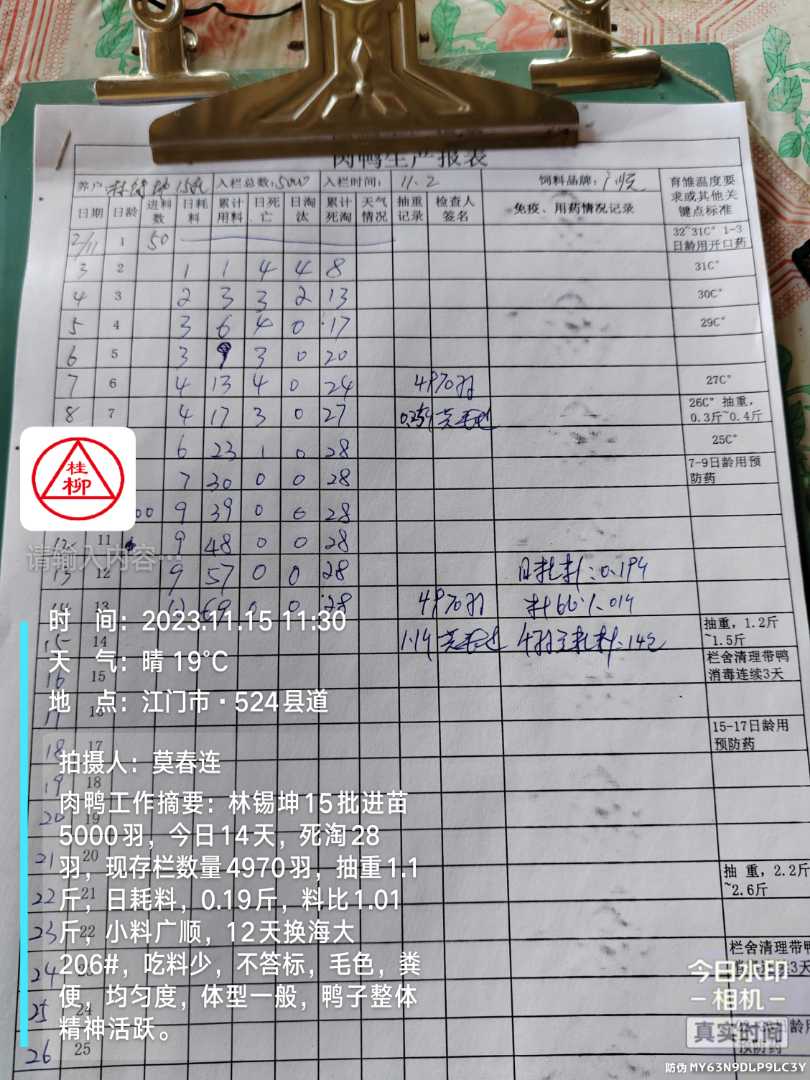 肉鸭生产报表
养户 林锡坤 15批 入栏总数:5000 入栏时间: 11.2 饲料品牌: 广顺 育雏温度要求或其他关键点标准
日期 日龄 进料数 日耗料 累计用料 日死亡 日淘汰 累计死淘 天气情况 抽重记录 检查人签名 免疫、用药情况记录
2/11 1 50 32~31C° 1-3日龄用开口药
3 2 1 1 4 4 8 31C°
4 3 2 3 3 2 13 30C°
5 4 3 6 4 0 17 29C°
6 5 3 9 3 0 20
7 6 4 13 4 0 24 4970羽 27C°
8 7 4 17 3 0 27 莫春连 26C° 抽重，0.3斤~0.4斤
6 23 1 0 28 25C°
7 30 0 0 28 7-9日龄用预防药
00 9 39 0 0 28
12 11 9 48 0 0 28
13 12 9 57 0 0 28 日耗料:0.19斤
14 13 12 69 0 0 28 4970羽 料比1.01斤
15 14 1.1斤 莫春连 抽重，1.2斤~1.5斤
16 15 栏舍清理带鸭消毒连续3天
17 16
18 17 15-17日龄用预防药
19 18
20 19
21 20 抽 重，2.2斤~2.6斤
22 21
23 22 栏舍清理带鸭
24 3天
25 24
26 25 预防药
桂柳
请输入内容…
时 间：2023.11.15 11:30
天 气：晴 19°C
地 点：江门市·524县道
拍摄人：莫春连
肉鸭工作摘要：林锡坤15批进苗
5000羽，今日14天，死淘28
羽，现存栏数量4970羽，抽重1.1
斤，日耗料，0.19斤，料比1.01
斤，小料广顺，12天换海大
206#，吃料少，不答标，毛色，粪
便，均匀度，体型一般，鸭子整体
精神活跃。
今日水印
相机
真实时间
防伪 MY63N9DLP9LC3Y